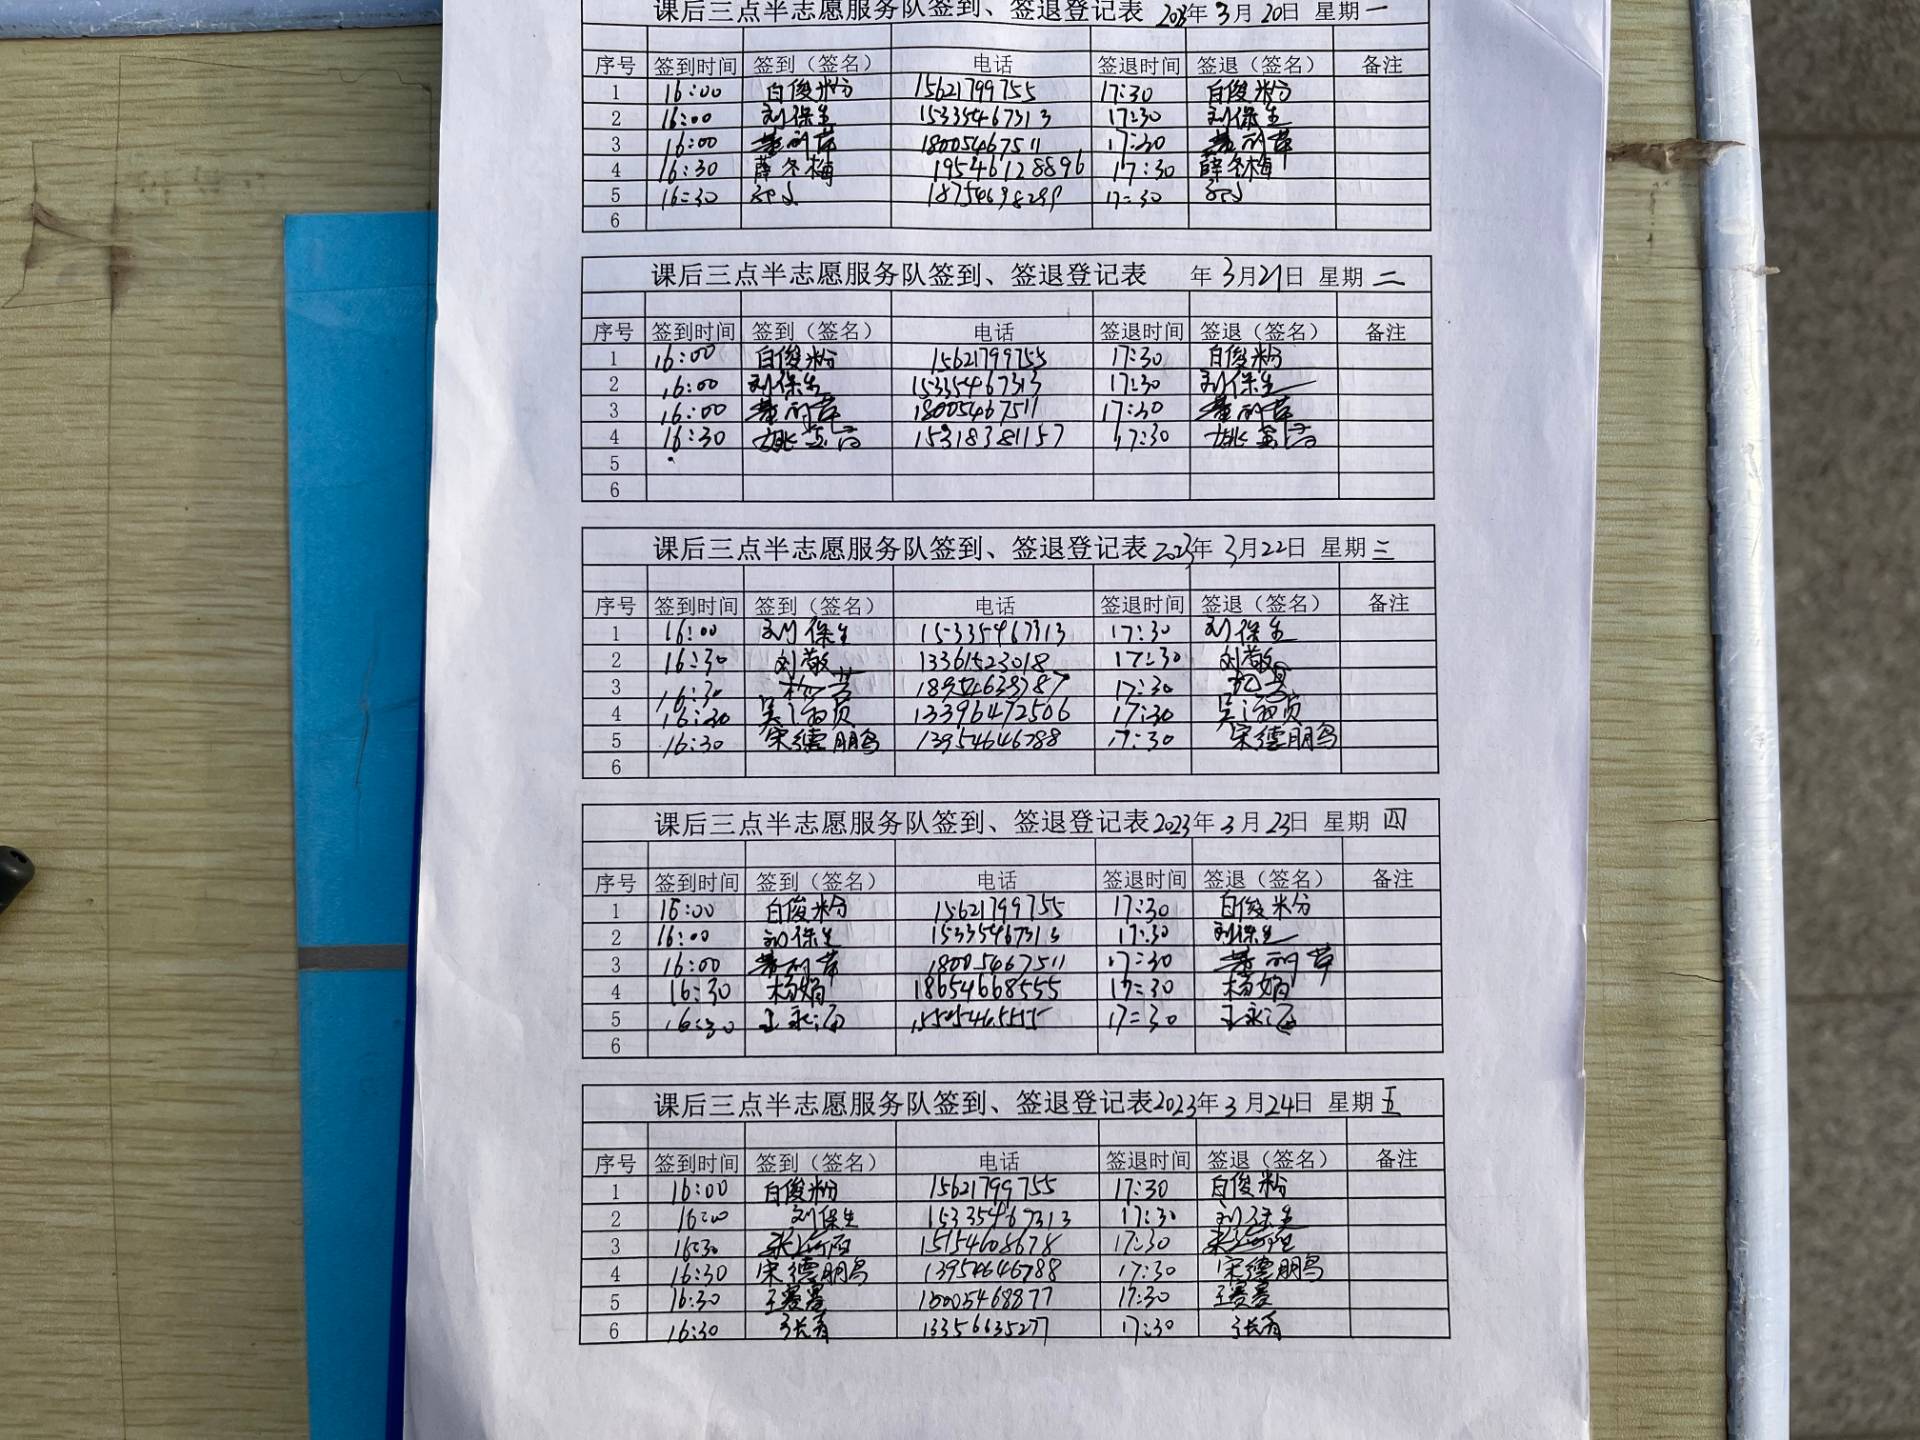 课后三点半志愿服务队签到、签退登记表 2023年3月20日 星期一
序号 签到时间 签到（签名） 电话 签退时间 签退（签名） 备注
1 16:00 白俊粉 15621799755 17:30 白俊粉
2 16:00 刘保生 15335467313 17:30 刘保生
3 16:00 18005467511 17:30
4 16:30 薛冬梅 19546128896 17:30 薛冬梅
5 16:30 17:30
6
课后三点半志愿服务队签到、签退登记表 年3月21日 星期二
序号 签到时间 签到（签名） 电话 签退时间 签退（签名） 备注
1 16:00 白俊粉 15621799755 17:30 白俊粉
2 16:00 刘保生 15335467313 17:30 刘保生
3 16:00 18005467511 17:30
4 16:30 15318381157 17:30
5
6
课后三点半志愿服务队签到、签退登记表 2023年3月22日 星期三
序号 签到时间 签到（签名） 电话 签退时间 签退（签名） 备注
1 16:00 刘保生 15335467313 17:30 刘保生
2 16:30 刘敬 13361523018 17:30 刘敬
3 16:30 17:30
4 16:30 13396472506 17:30
5 16:30 宋德鹏 13954646788 17:30 宋德鹏
6
课后三点半志愿服务队签到、签退登记表 2023年3月23日 星期四
序号 签到时间 签到（签名） 电话 签退时间 签退（签名） 备注
1 16:00 白俊粉 15621799755 17:30 白俊粉
2 16:00 刘保生 15335467313 17:30 刘保生
3 16:00 18005467511 17:30
4 16:30 杨娟 18654668555 17:30 杨娟
5 16:30 王永海 17:30 王永海
6
课后三点半志愿服务队签到、签退登记表 2023年3月24日 星期五
序号 签到时间 签到（签名） 电话 签退时间 签退（签名） 备注
1 16:00 白俊粉 15621799755 17:30 白俊粉
2 16:00 刘保生 15335467313 17:30 刘保生
3 16:30 15154608678 17:30
4 16:30 宋德鹏 13954646788 17:30 宋德鹏
5 16:30 王赛赛 18005468877 17:30 王赛赛
6 16:30 13356635277 17:30